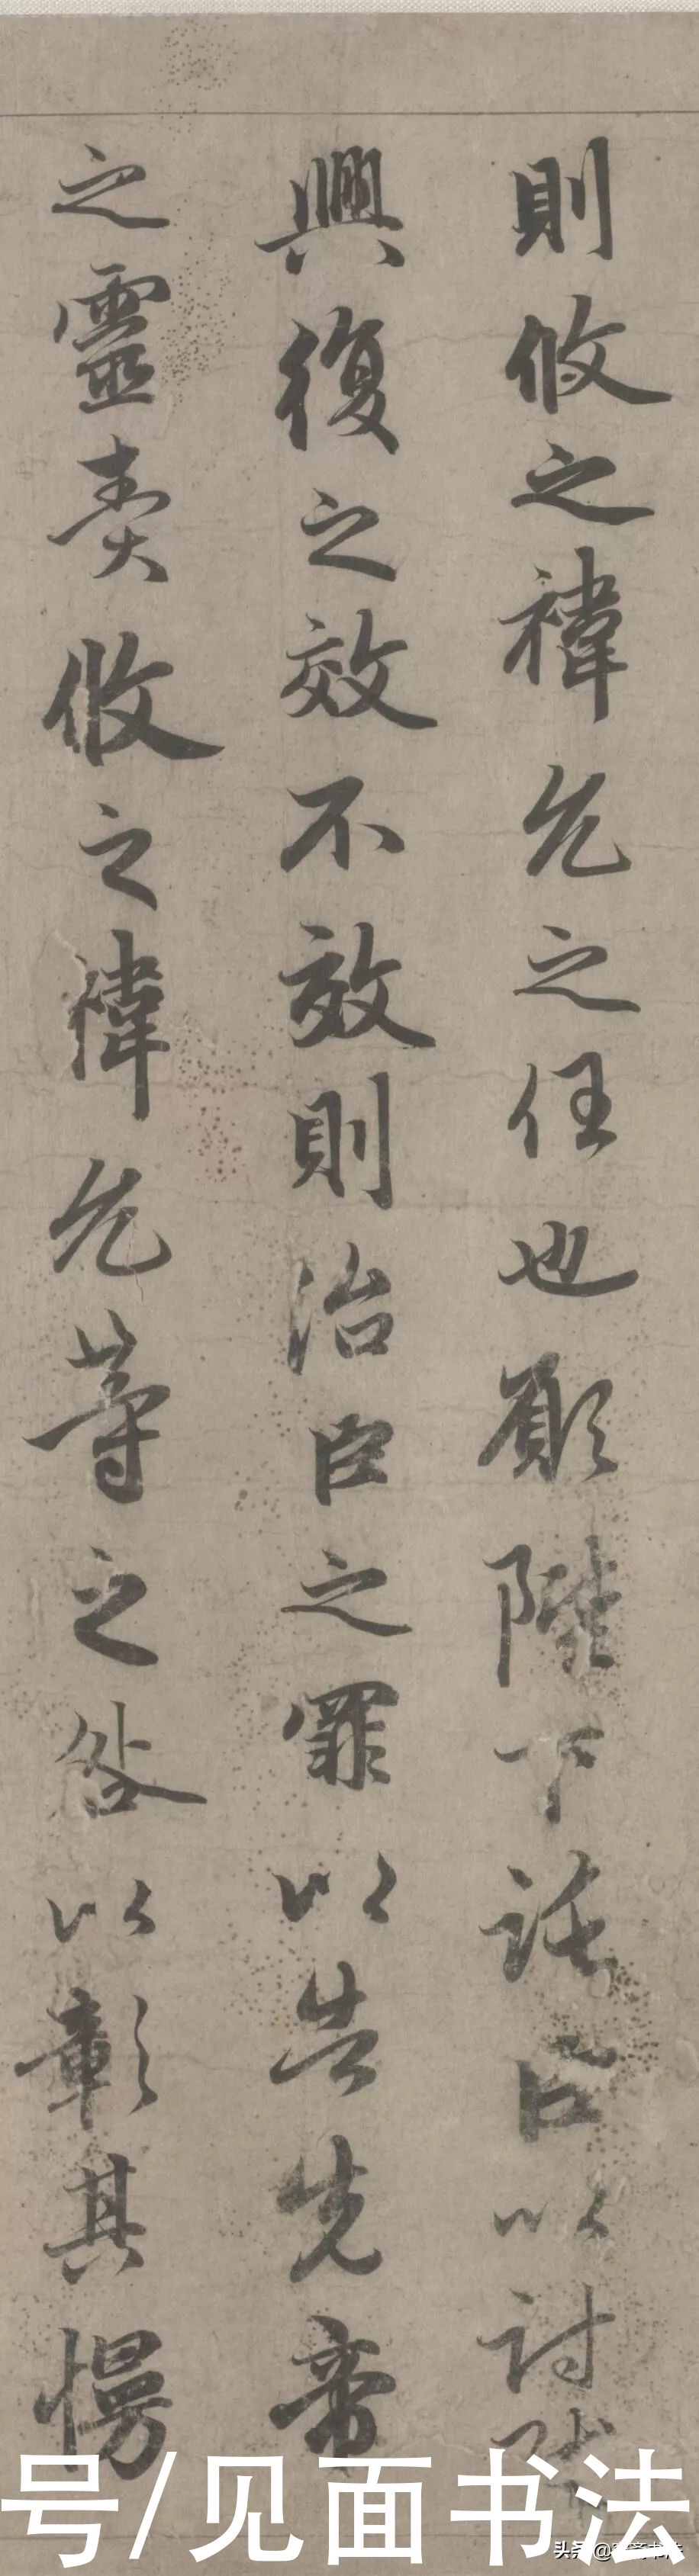 則攸之禕允之任也願陛下託臣以討賊
興復之效不效則治臣之罪以告先帝
之靈責攸之禕允等之咎以彰其慢
号/见面书法